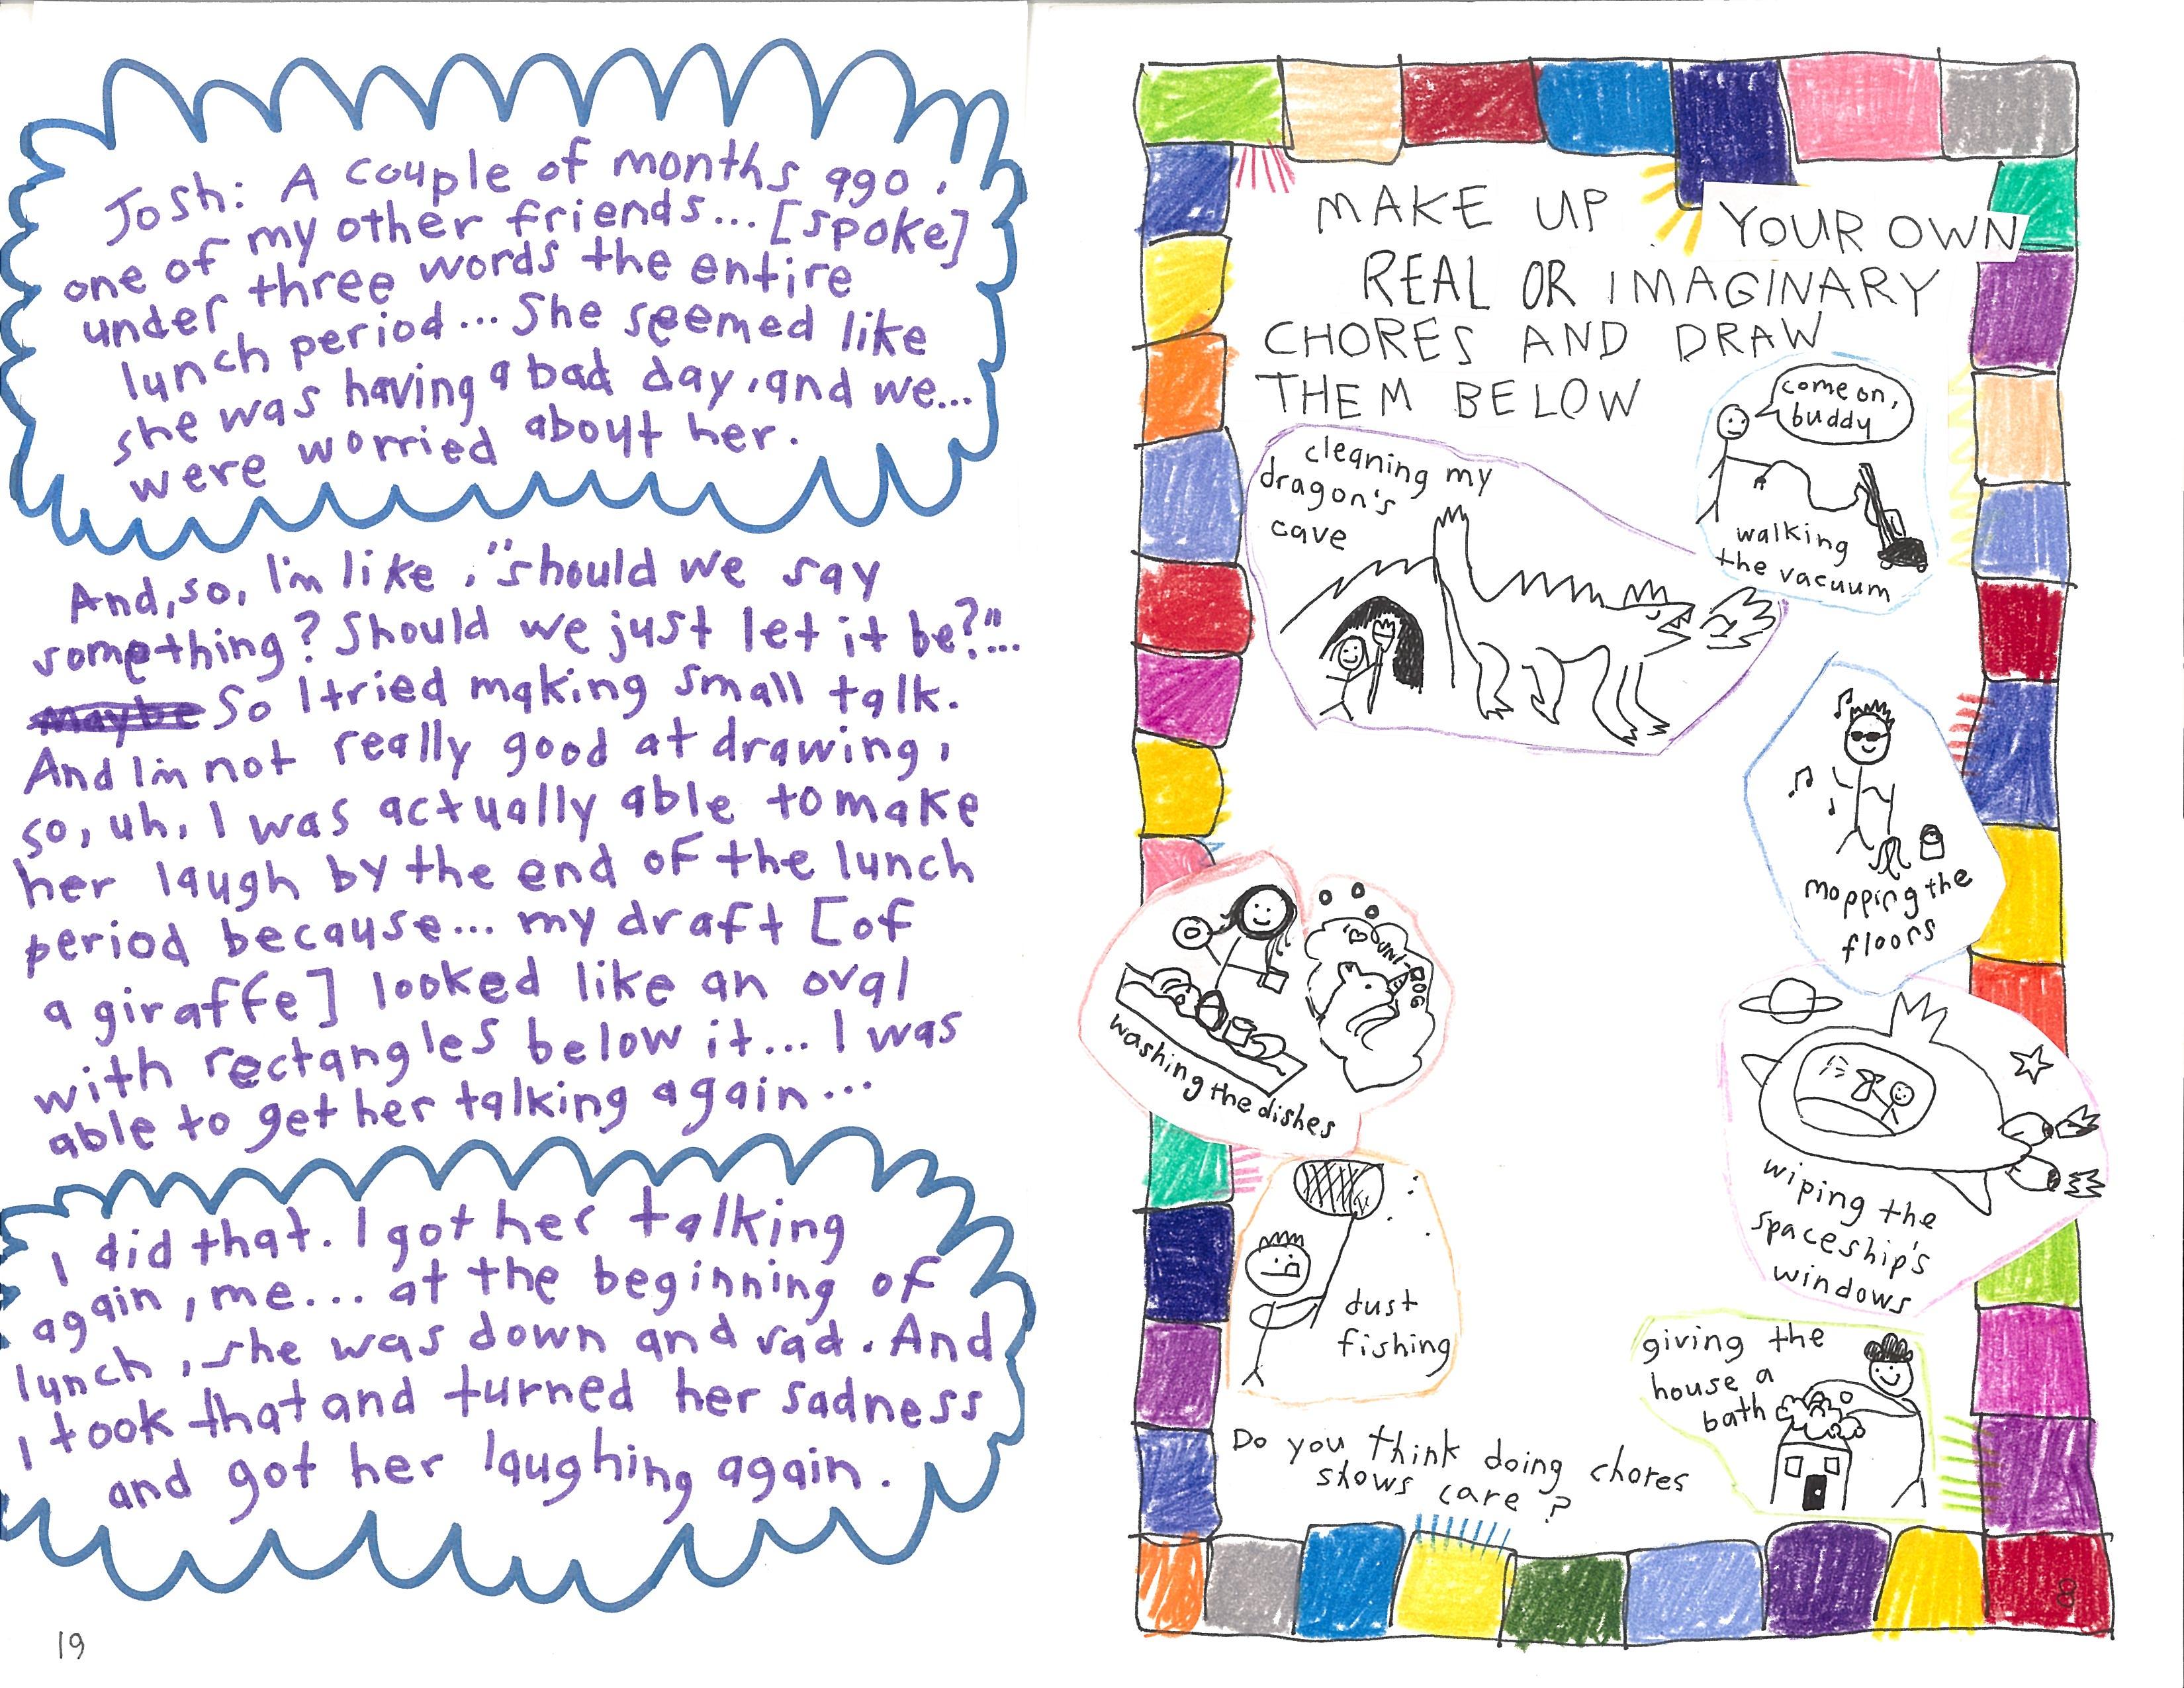 Josh: A couple of months ago,
one of my other friends... [spoke]
under three words the entire
lunch period... She seemed like
she was having a bad day, and we...
were worried about her.
And, so, I'm like, "should we say
something? Should we just let it be?"...
Maybe So I tried making small talk.
And I'm not really good at drawing,
so, uh, I was actually able to make
her laugh by the end of the lunch
period because... my draft [of
a giraffe] looked like an oval
with rectangles below it... I was
able to get her talking again...
I did that. I got her talking
again, me... at the beginning of
lunch, she was down and sad. And
I took that and turned her sadness
and got her laughing again.
19
MAKE UP YOUR OWN
REAL OR IMAGINARY
CHORES AND DRAW
THEM BELOW
come on,
buddy
walking
the vacuum
cleaning my
dragon's
cave
mopping the
floors
I ♡ UNI-DOG
washing the dishes
wiping the
spaceship's
windows
dust
fishing
giving the
house a
bath
Do you think doing chores
shows care?
8